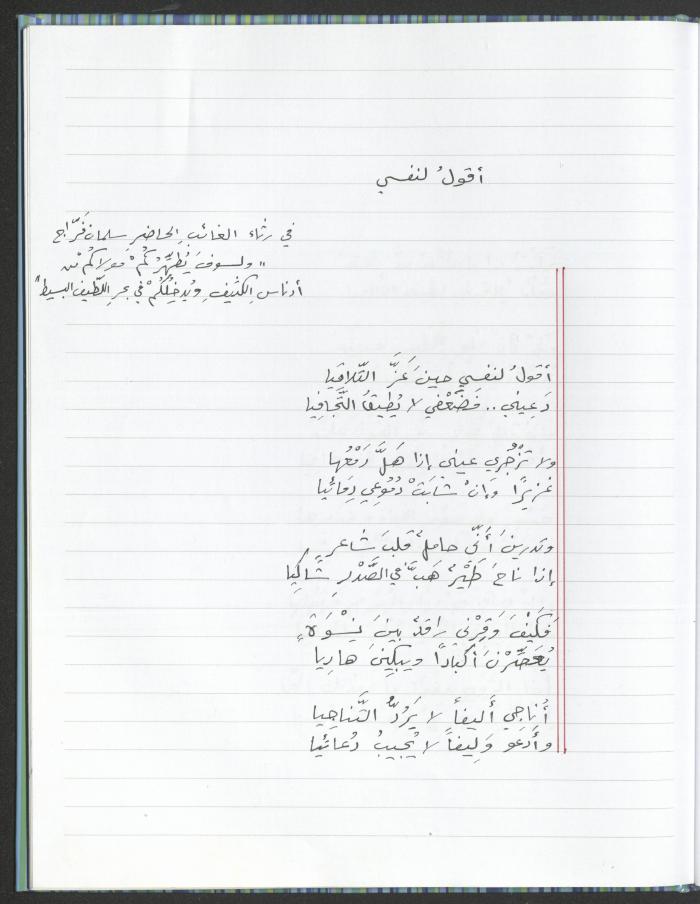 أقولُ لنفسي
في رثاء الغائبِ الحاضرِ سلمان فَرَّاج
"ولسوفَ يُطهِّرُكُمْ مولاكُم من
أدناسِ الكَثيفِ، ويُدخِلُكُمْ في بحرِ اللّطيف البسيط"
أقولُ لنفسي حينَ عَزَّ التّلاقِيا
دَعيني.. فضَعْفي لا يُطيقُ التَّجافِيا
ولا تَزْجُري عيني إذا هَلَّ دَمْعُها
غزيرًا وَإنْ شابَتْ دُمُوعي دِمائيا
وتدرينَ أنّي حاملٌ قلبَ شاعرٍ
إذا ناحَ طَيْرٌ هَبَّ في الصَّدْرِ شاكِيا
فكَيْفَ وَقِرْني راقدٌ بينَ نِسْوَةٍ
يُعَصِّرْنَ أكبادًا ويبكينَ هاريا
أُناجي أَليفاً لا يَرُدُّ التَّناجيا
وأَدعو وَليفاً لا يُجيبُ دُعائيا